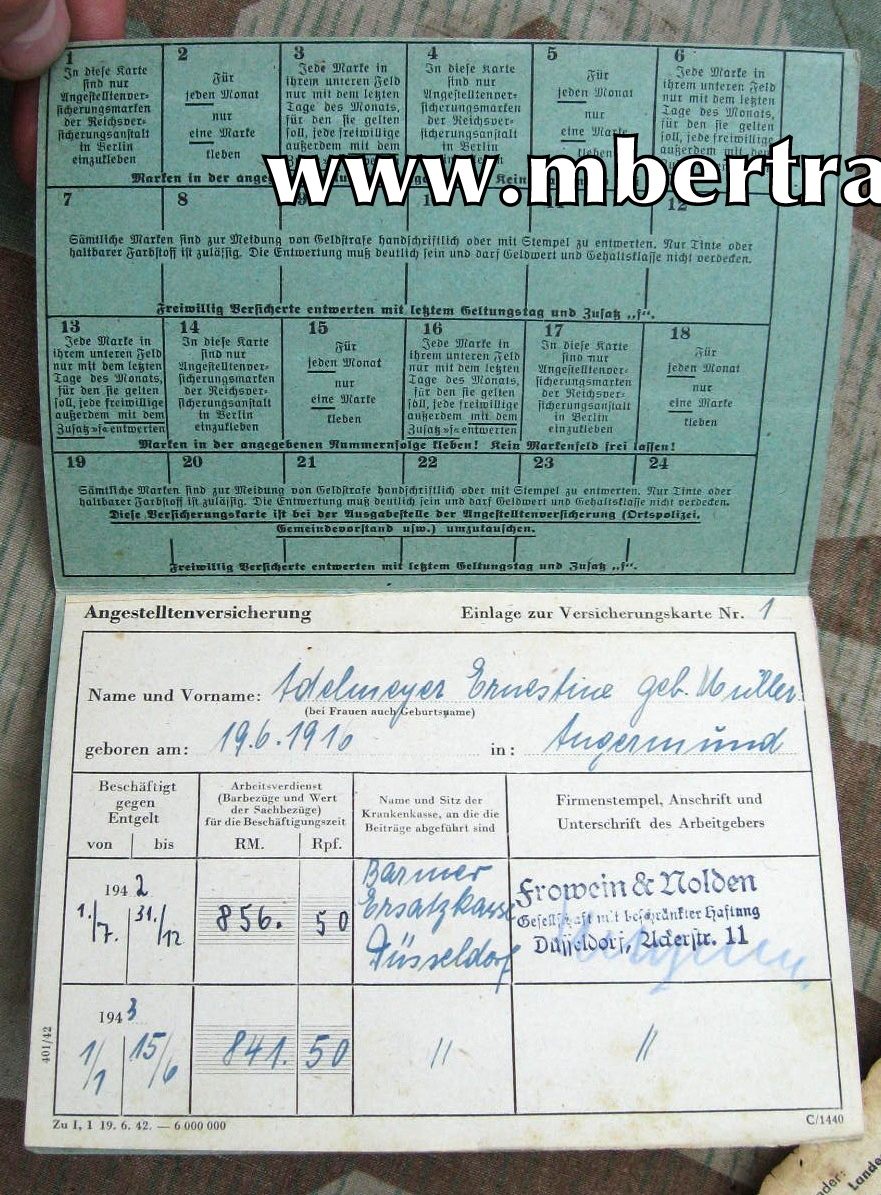 1
In diese Karte
sind nur
Angestelltenver-
sicherungsmarken
der Reichsver-
sicherungsanstalt
in Berlin
einzukleben
2
Für
jeden Monat
nur
eine Marke
kleben
3
Jede Marke in
ihrem unteren Feld
nur mit dem letzten
Tage des Monats,
für den sie gelten
soll, jede freiwillige
außerdem mit dem
4
In diese Karte
sind nur
Angestelltenver-
sicherungsmarken
der Reichsver-
sicherungsanstalt
in Berlin
5
Für
jeden Monat
nur
eine Marke
kleben
6
Jede Marke in
ihrem unteren Feld
nur mit dem letzten
Tage des Monats,
für den sie gelten
soll, jede freiwillige
außerdem mit dem
www.mbertra
Marken in der Kein
7
8
12
Sämtliche Marken sind zur Meidung von Geldstrafe handschriftlich oder mit Stempel zu entwerten. Nur Tinte oder
haltbarer Farbstoff ist zulässig. Die Entwertung muß deutlich sein und darf Geldwert und Gehaltsklasse nicht verdecken.
Freiwillig Versicherte entwerten mit letztem Geltungstag und Zusatz „f“.
13
Jede Marke in
ihrem unteren Feld
nur mit dem letzten
Tage des Monats,
für den sie gelten
soll, jede freiwillige
außerdem mit dem
Zusatz »f« entwerten
14
In diese Karte
sind nur
Angestelltenver-
sicherungsmarken
der Reichsver-
sicherungsanstalt
in Berlin
einzukleben
15
Für
jeden Monat
nur
eine Marke
kleben
16
Jede Marke in
ihrem unteren Feld
nur mit dem letzten
Tage des Monats,
für den sie gelten
soll, jede freiwillige
außerdem mit dem
Zusatz »f« entwerten
17
In diese Karte
sind nur
Angestelltenver-
sicherungsmarken
der Reichsver-
sicherungsanstalt
in Berlin
einzukleben
18
Für
jeden Monat
nur
eine Marke
kleben
Marken in der angegebenen Nummernfolge kleben! Kein Markenfeld frei lassen!
19 20 21 22 23 24
Sämtliche Marken sind zur Meidung von Geldstrafe handschriftlich oder mit Stempel zu entwerten. Nur Tinte oder
haltbarer Farbstoff ist zulässig. Die Entwertung muß deutlich sein und darf Geldwert und Gehaltsklasse nicht verdecken.
Diese Versicherungskarte ist bei der Ausgabestelle der Angestelltenversicherung (Ortspolizei,
Gemeindevorstand usw.) umzutauschen.
Freiwillig Versicherte entwerten mit letztem Geltungstag und Zusatz „f“.
Angestelltenversicherung Einlage zur Versicherungskarte Nr. 1
Name und Vorname: Adelmeyer Ernestine geb. Müller
(bei Frauen auch Geburtsname)
geboren am: 19.6.1910 in: Angermund
Beschäftigt
gegen
Entgelt
von bis
Arbeitsverdienst
(Barbezüge und Wert
der Sachbezüge)
für die Beschäftigungszeit
RM. Rpf.
Name und Sitz der
Krankenkasse, an die die
Beiträge abgeführt sind
Firmenstempel, Anschrift und
Unterschrift des Arbeitgebers
1942
1./7. 31./12
856. 50
Barmer
Ersatzkasse
Düsseldorf
Frowein & Nolden
Gesellschaft mit beschränkter Haftung
Düsseldorf, Ackerstr. 11
1943
1/1 15/6
841. 50
" "
401/42
Zu I, 1 19. 6. 42. — 6 000 000 C/1440
Lande